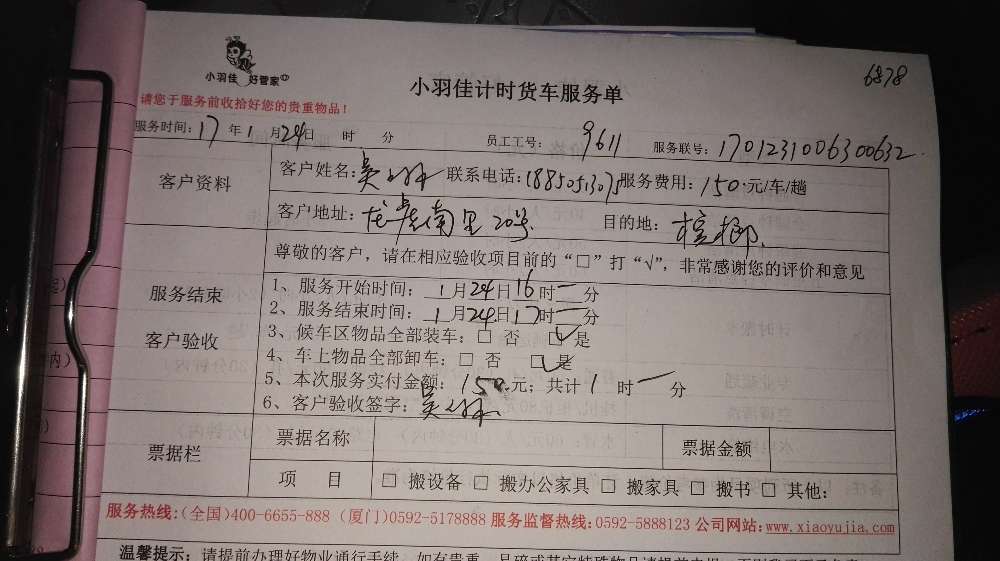 6878
小羽佳 好管家
小羽佳计时货车服务单
请您于服务前收拾好您的贵重物品！
服务时间：17年1月24日 时 分 员工工号：9611 服务联号：1701231006300632
客户资料
客户姓名：吴 联系电话：18850513075 服务费用：150元/车/趟
客户地址：龙虎南里20号 目的地：槟榔
服务结束
客户验收
尊敬的客户，请在相应验收项目前的“□”打“√”，非常感谢您的评价和意见
1、服务开始时间：1月24日16时一分
2、服务结束时间：1月24日17时一分
3、候车区物品全部装车：□ 否 ☑是
4、车上物品全部卸车：□ 否 ☑是
5、本次服务实付金额：150元；共计1时一分
6、客户验收签字：吴
票据栏
票据名称 票据金额
项 目 □ 搬设备 □ 搬办公家具 □ 搬家具 □ 搬书 □ 其他：
服务热线：(全国)400-6655-888 (厦门)0592-5178888 服务监督热线：0592-5888123 公司网站：www.xiaoyujia.com
温馨提示：请提前办理好物业通行手续，如有贵重、易碎或其它特殊物品请提前